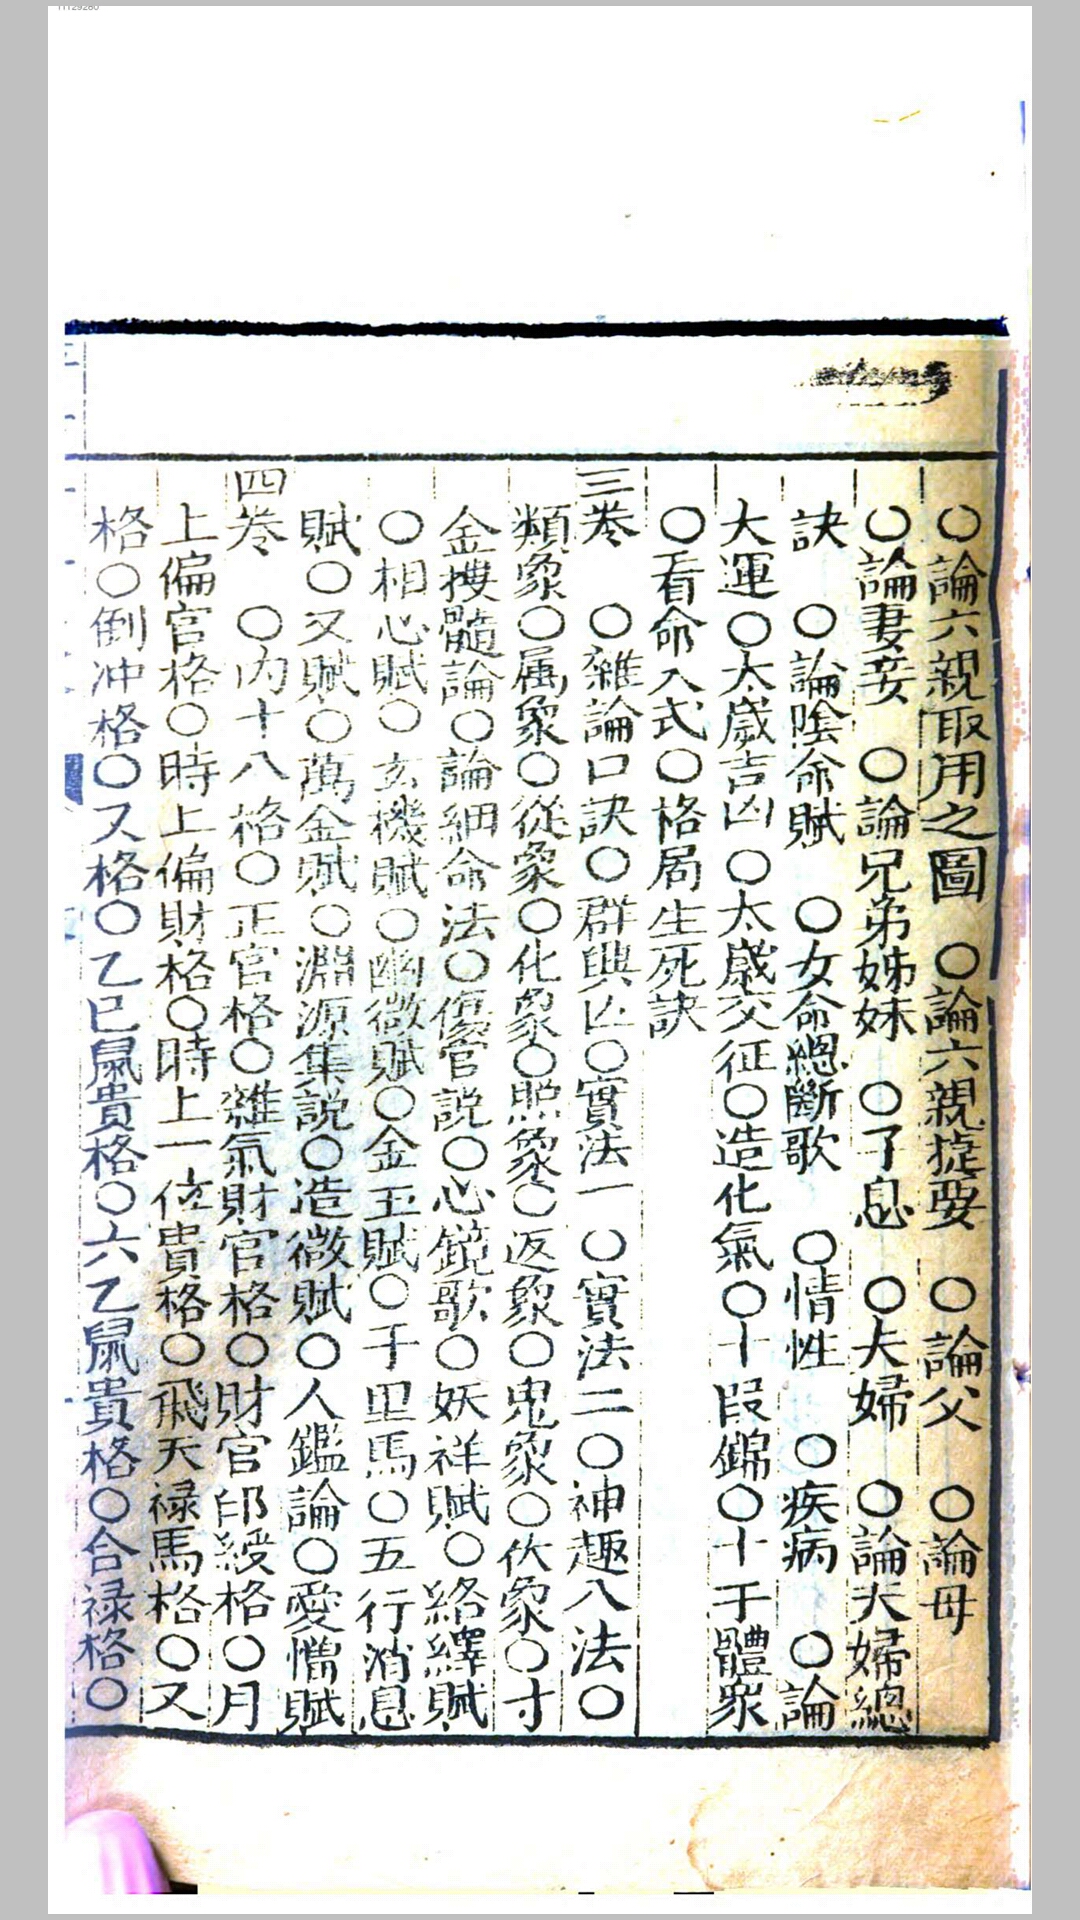 ○論六親取用之圖　○論六親捷要　○論父　○論母
○論妻妾　○論兄弟姊妹　○子息　○夫婦　○論夫婦總
訣　○論陰命賦　○女命總斷歌　○情性　○疾病　○論
大運○太歲吉凶○太歲交征○造化氣○十段錦○十干體象
○看命入式○格局生死訣
三卷　○雜論口訣○群興○實法一○實法二○神趣八法○
類象○属象○從象○化象○照象○返象○鬼象○伏象○寸
金搜髓論○論細命法○傷官説○心鏡歌○妖祥賦○絡繹賦
○相心賦○玄機賦○幽微賦○金玉賦○千里馬○五行消息
賦○又賦○萬金賦○淵源集説○造微賦○人鑑論○愛憎賦
四卷　○內十八格○正官格○雜氣財官格○財官印綬格○月
上偏官格○時上偏財格○時上一位貴格○飛天禄馬格○又
格○倒冲格○又格○乙巳鼠貴格○六乙鼠貴格○合禄格○